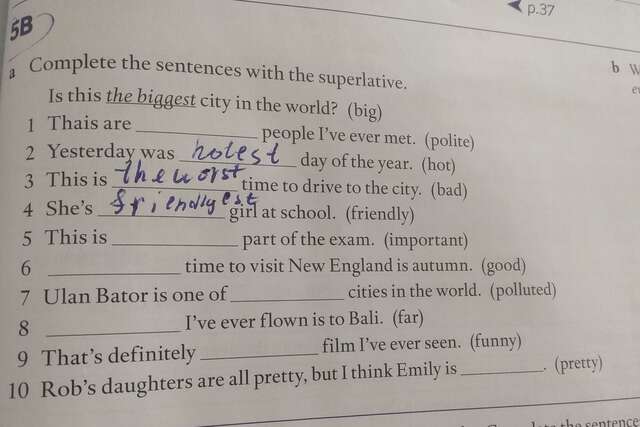 p.37
5B
a Complete the sentences with the superlative. b W
Is this the biggest city in the world? (big)
1 Thais are ____________ people I've ever met. (polite)
2 Yesterday was hotest day of the year. (hot)
3 This is the worst time to drive to the city. (bad)
4 She's friendlyest girl at school. (friendly)
5 This is ____________ part of the exam. (important)
6 ____________ time to visit New England is autumn. (good)
7 Ulan Bator is one of ____________ cities in the world. (polluted)
8 ____________ I've ever flown is to Bali. (far)
9 That's definitely ____________ film I've ever seen. (funny)
10 Rob's daughters are all pretty, but I think Emily is ____________. (pretty)
the sentence